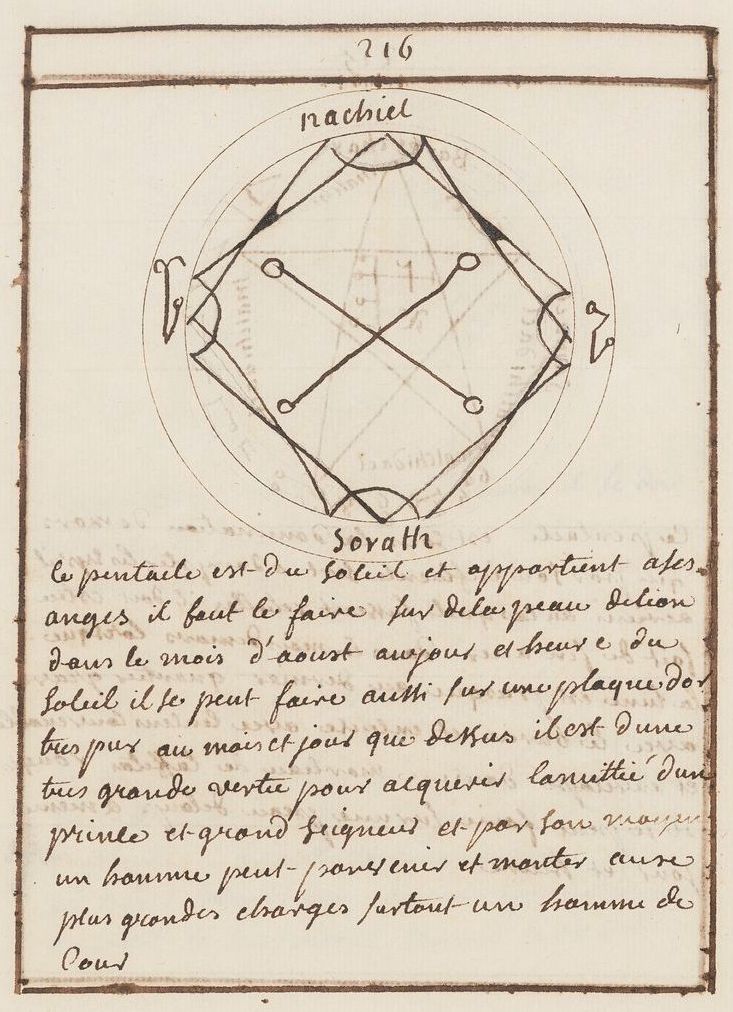 216
nachiel
Sorath
Ce pentacle est du Soleil et appartient a ses
anges il faut le faire sur dela peau delion
dans le mois d'aoust aujour et heure du
Soleil il se peut faire aussi sur une plaque dor
tres pur au mois et jour que dessus il est dune
tres grande vertu pour acquerir lamittié dun
prince et grand seigneur et par son moyen
un homme peut parvenir et monter auxe
plus grandes charges surtout un homme de
Cour